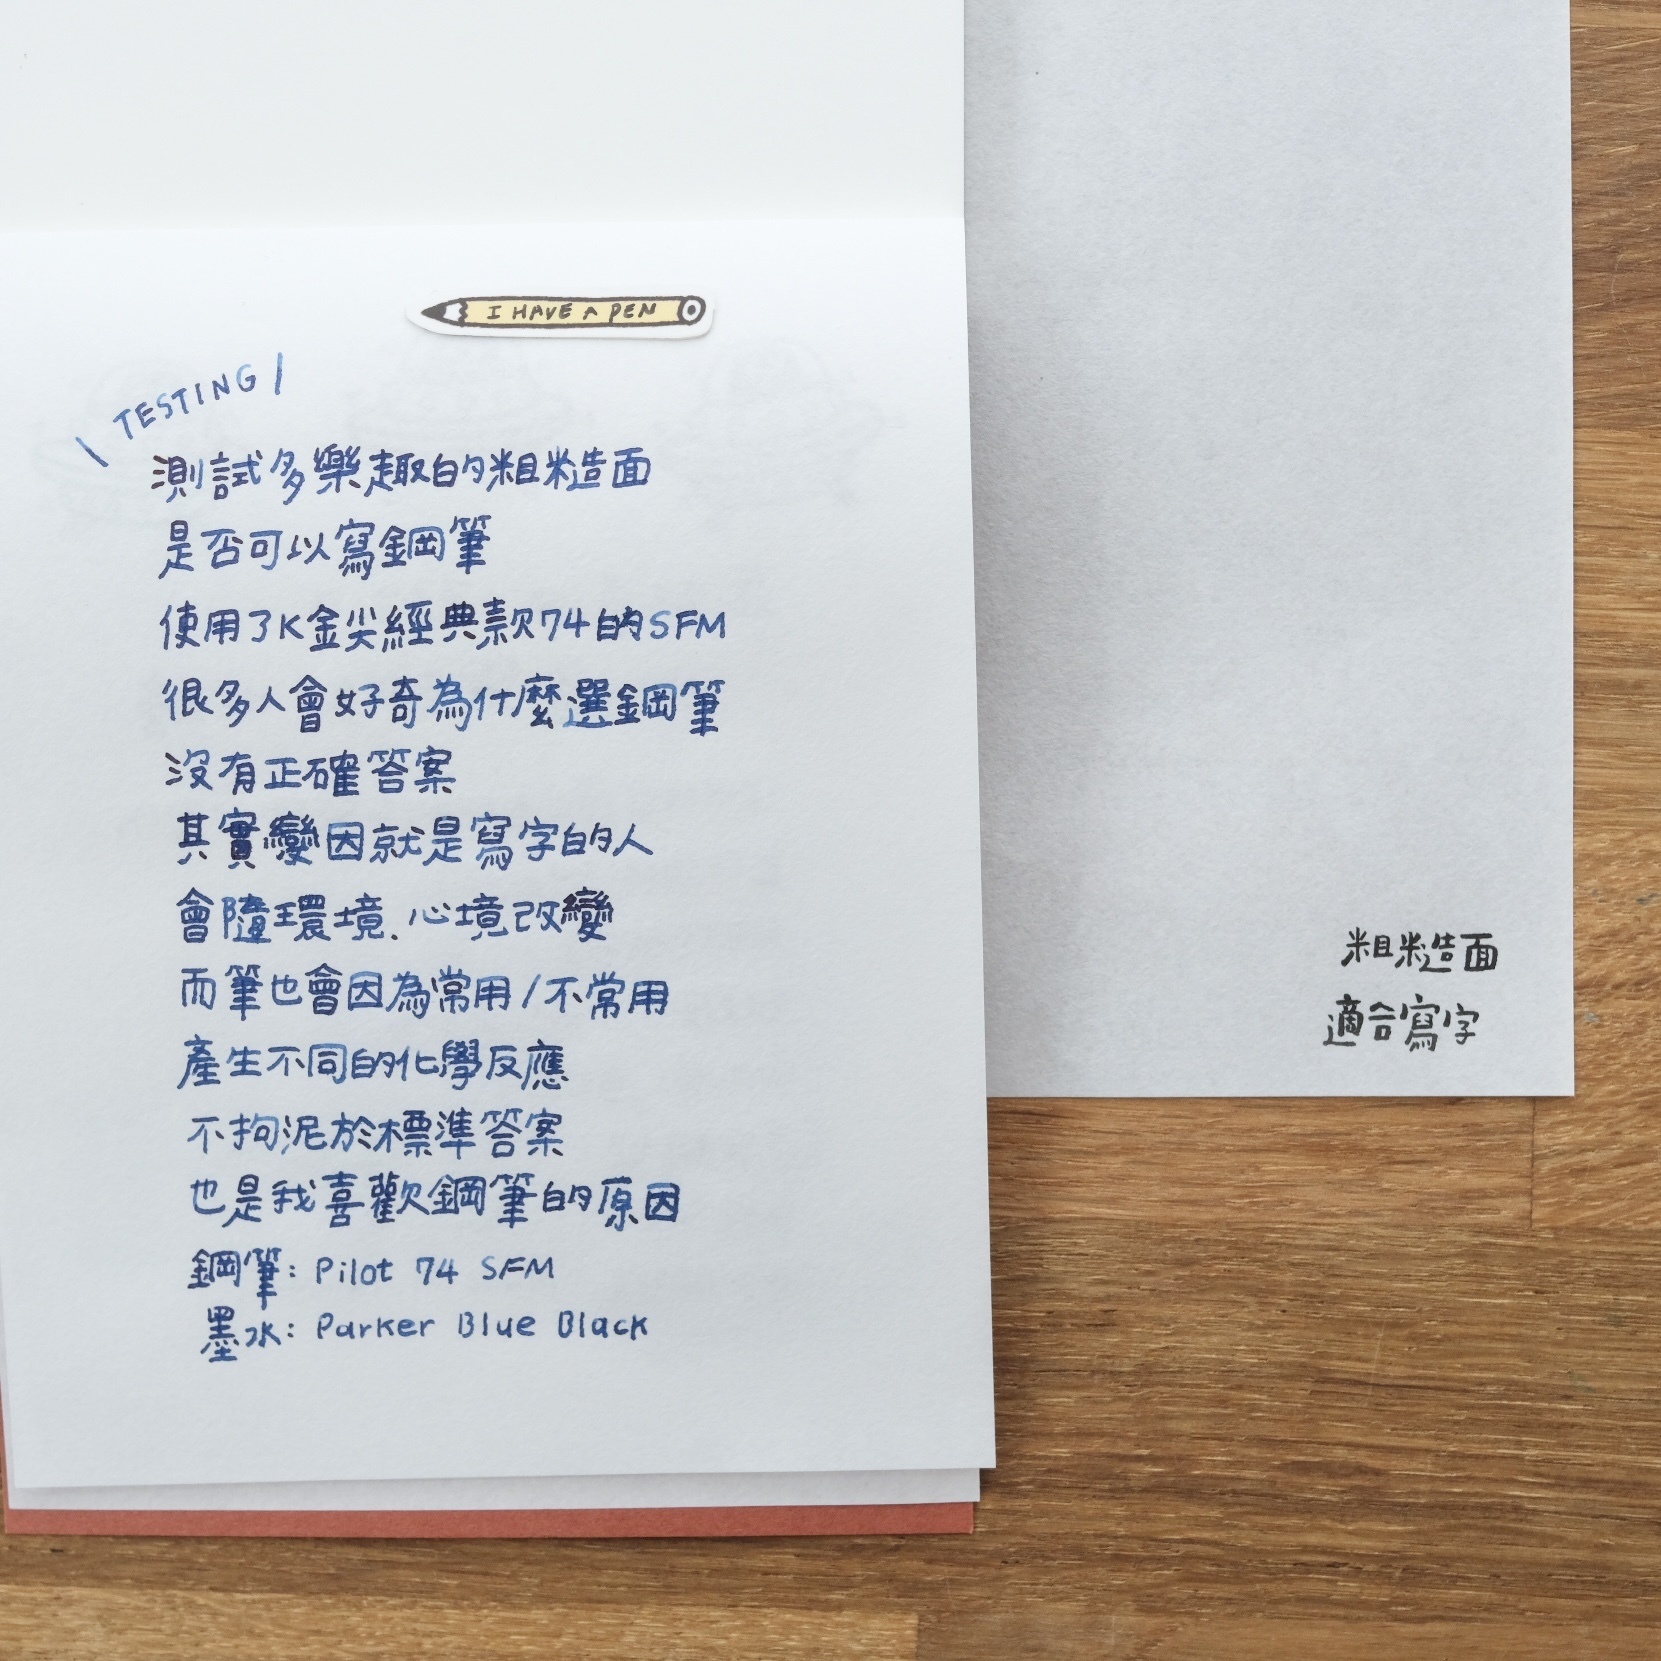 I HAVE A PEN
\ TESTING /
測試多樂趣的粗糙面
是否可以寫鋼筆
使用了K金尖經典款74的SFM
很多人會好奇為什麼選鋼筆
沒有正確答案
其實變因就是寫字的人
會隨環境、心境改變
而筆也會因為常用/不常用
產生不同的化學反應
不拘泥於標準答案
也是我喜歡鋼筆的原因
鋼筆: Pilot 74 SFM
墨水: Parker Blue Black
粗糙面
適合寫字